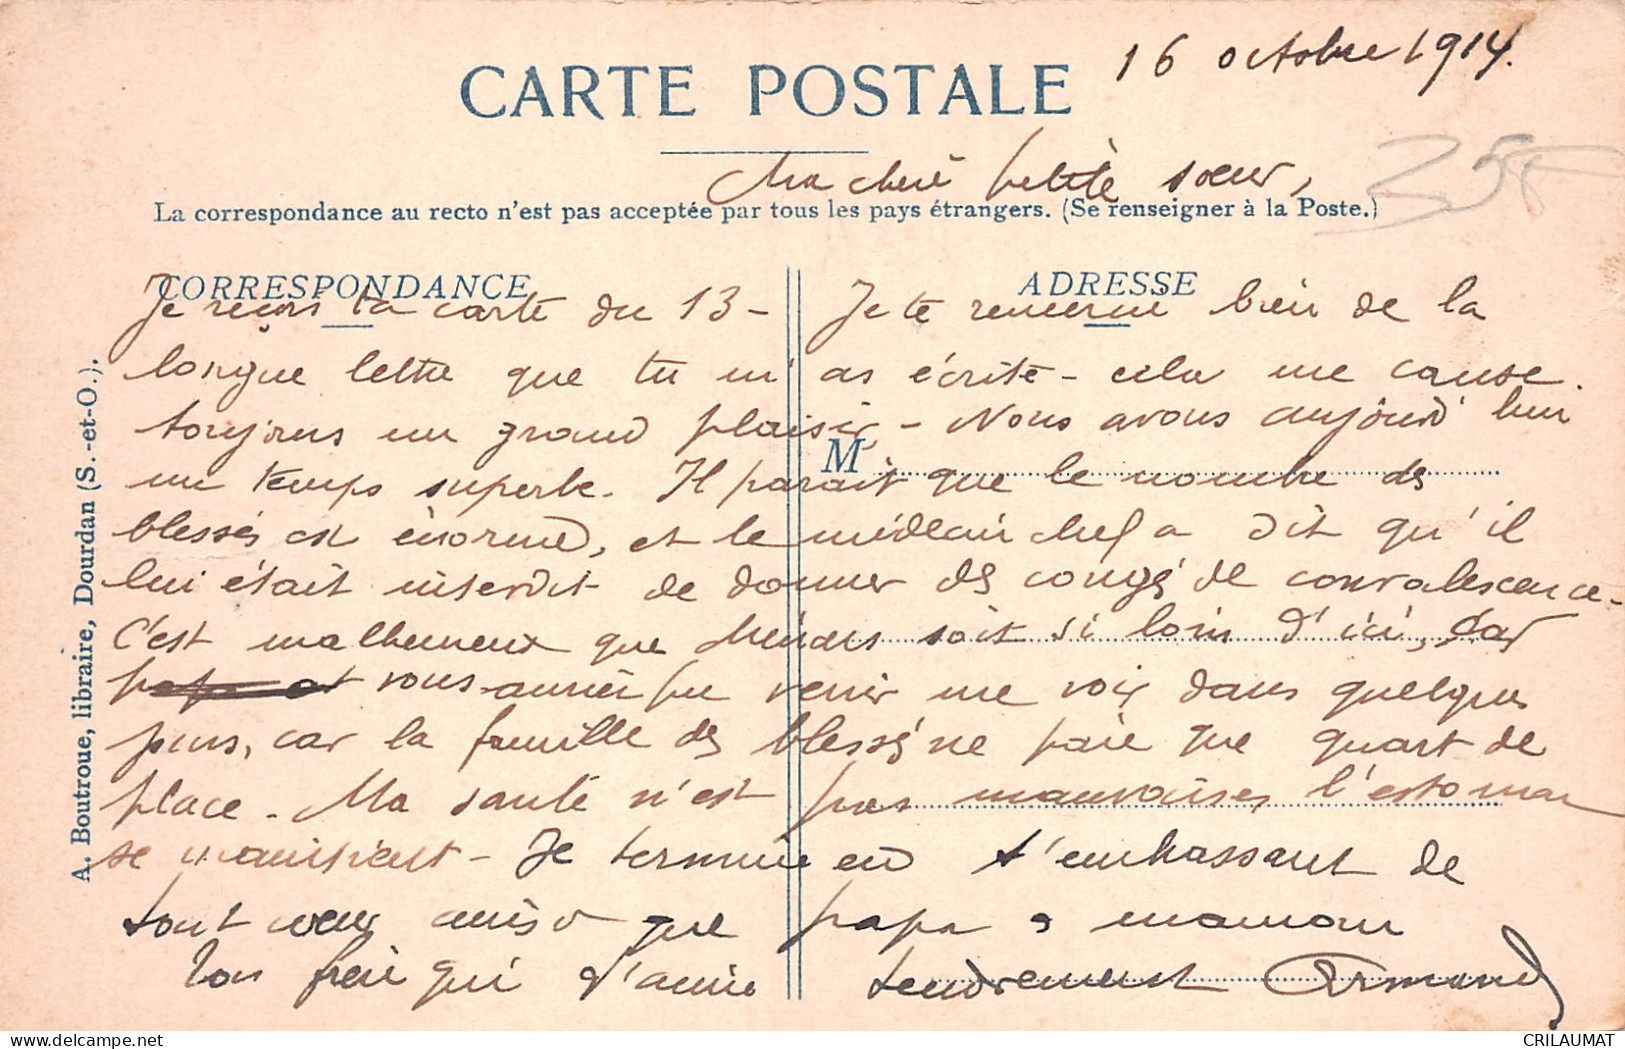 16 octobre 1914.
CARTE POSTALE
Ma chère petite sœur,
La correspondance au recto n'est pas acceptée par tous les pays étrangers. (Se renseigner à la Poste.)
CORRESPONDANCE
ADRESSE
Je reçois ta carte du 13 - Je te remercie bien de la
longue lettre que tu m'as écrite - cela me cause
toujours un grand plaisir - Nous avons aujourd'hui
M
un temps superbe. Il parait que le nombre des
blessés est énorme, et le médecin chef a dit qu'il
lui était interdit de donner des congés de convalescence -
C'est malheureux que soit si loin d'ici, car
papa et vous auriez pu venir me voir dans quelques
jours, car la famille des blessés ne paie que quart de
place. Ma santé n'est pas mauvaise, l'estomac
se maintient - Je termine en t'embrassant de
tout cœur ainsi que papa & maman
Ton frère qui t'aime tendrement Armand
A. Boutroue, libraire, Dourdan (S.-et-O.).
CRILAUMAT